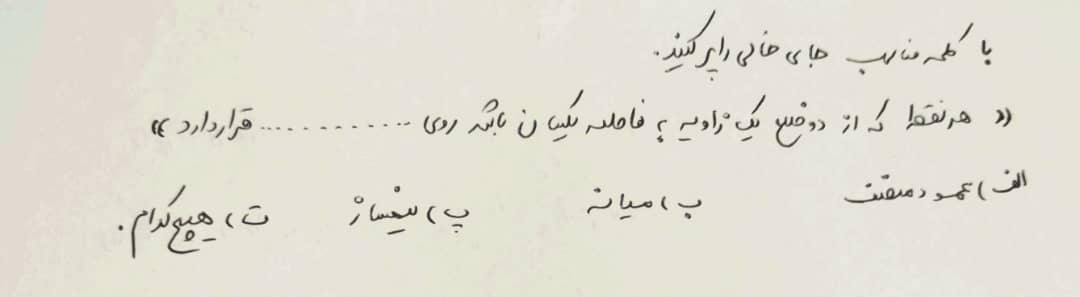 با کلمه مناسب جای خالی را پر کنید.
« هر نقطه که از دو ضلع یک زاویه به فاصله یکسان باشد روی ............ قرار دارد »
الف) عمود منصف ب) میانه پ) نیمساز ت) هیچ کدام.